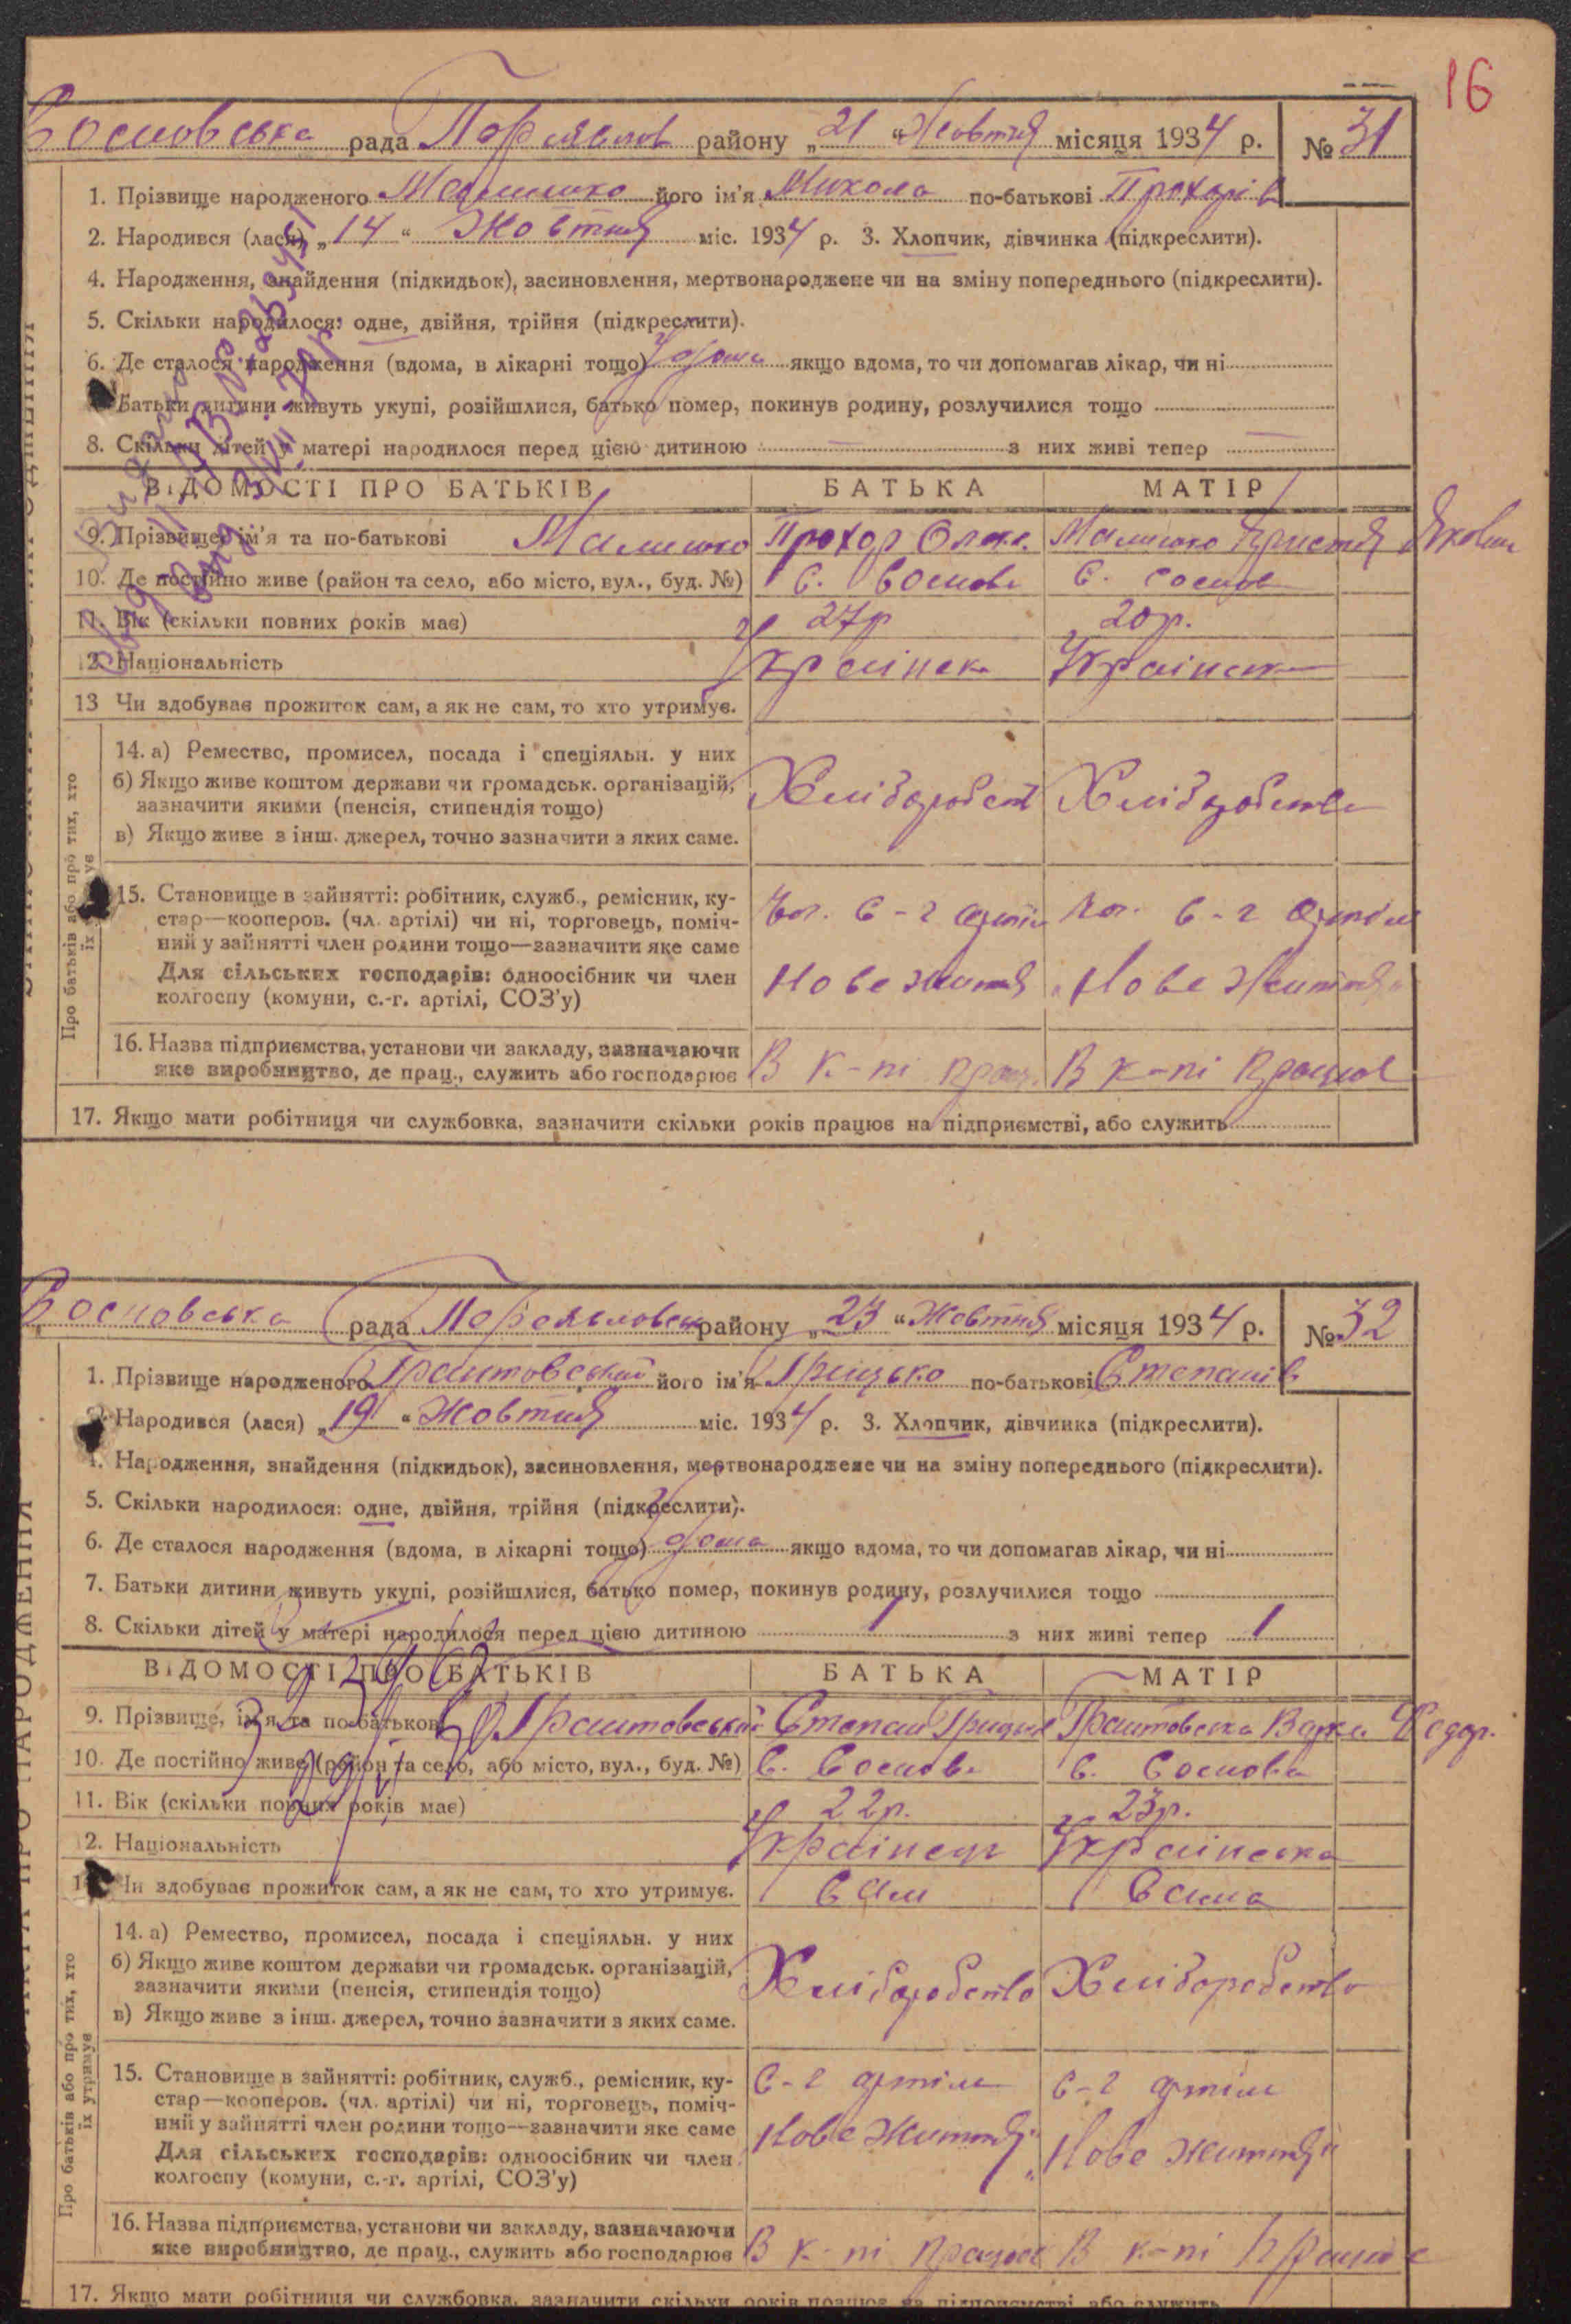 16
Сосновська рада Переяслов району „21“ Жовтня місяця 1934 р. № 31
1. Прізвище народженого Малишко його ім'я Микола по-батькові Прохорів
2. Народився (лася) „14“ Жовтня міс. 1934 р. 3. Хлопчик, дівчинка (підкреслити).
4. Народження, знайдення (підкидьок), засиновлення, мертвонароджене чи на зміну попереднього (підкреслити).
5. Скільки народилося: одне, двійня, трійня (підкреслити).
6. Де сталося народження (вдома, в лікарні тощо) Удома якщо вдома, то чи допомагав лікар, чи ні
Батьки дитини живуть укупі, розійшлися, батько помер, покинув родину, розлучилися тощо
8. Скільки дітей у матері народилося перед цією дитиною — з них живі тепер —
ВІДОМОСТІ ПРО БАТЬКІВ БАТЬКА МАТІР
9. Прізвище, ім'я та по-батькові Малишко Прохор Олек. Малишко Христя Яковл
10. Де постійно живе (район та село, або місто, вул., буд. №) С. Соснова С. Соснов
11. Вік (скільки повних років має) 27р 20р.
12. Національність Українск Українска
13 Чи здобуває прожиток сам, а як не сам, то хто утримує.
Про батьків або про тих, хто їх утримує
14. а) Ремество, промисел, посада і спеціяльн. у них
б) Якщо живе коштом держави чи громадськ. організацій, зазначити якими (пенсія, стипендія тощо) Хліборобст Хліборобство
в) Якщо живе з інш. джерел, точно зазначити з яких саме.
15. Становище в зайнятті: робітник, служб., ремісник, ку-
стар—кооперов. (чл. артілі) чи ні, торговець, поміч- Чл. С-г артіли Чл. С-г артіли
ний у зайнятті член родини тощо—зазначити яке саме
Для сільських господарів: одноосібник чи член Нове життя „Нове Життя“
колгоспу (комуни, с.-г. артілі, СОЗ'у)
16. Назва підприємства, установи чи закладу, зазначаючи
яке виробництво, де прац., служить або господарює В к-пі прац. В к-пі працює
17. Якщо мати робітниця чи службовка, зазначити скільки років працює на підприємстві, або служить
Сосновська рада Переясловськ району „23“ Жовтня місяця 1934 р. № 32
1. Прізвище народженого Граштовський його ім'я Грицько по-батькові Степанів
Народився (лася) „19“ Жовтня міс. 1934 р. 3. Хлопчик, дівчинка (підкреслити).
4. Народження, знайдення (підкидьок), засиновлення, мертвонароджене чи на зміну попереднього (підкреслити).
5. Скільки народилося: одне, двійня, трійня (підкреслити).
6. Де сталося народження (вдома, в лікарні тощо) Удома якщо вдома, то чи допомагав лікар, чи ні
7. Батьки дитини живуть укупі, розійшлися, батько помер, покинув родину, розлучилися тощо
8. Скільки дітей у матері народилося перед цією дитиною 1 з них живі тепер 1
ВІДОМОСТІ ПРО БАТЬКІВ БАТЬКА МАТІР
9. Прізвище, ім'я та по-батькові Граштовський Степан Грицьк Граштовська Варка Федор.
10. Де постійно живе (район та село, або місто, вул., буд. №) С. Соснова С. Соснова
11. Вік (скільки повних років має) 22р. 23р.
12. Національність Українец Українска
Чи здобуває прожиток сам, а як не сам, то хто утримує. Сам Сама
Про батьків або про тих, хто їх утримує
14. а) Ремество, промисел, посада і спеціяльн. у них
б) Якщо живе коштом держави чи громадськ. організацій, зазначити якими (пенсія, стипендія тощо) Хліборобство Хліборобство
в) Якщо живе з інш. джерел, точно зазначити з яких саме.
15. Становище в зайнятті: робітник, служб., ремісник, ку- С-г артіли С-г артіли
стар—кооперов. (чл. артілі) чи ні, торговець, поміч-
ний у зайнятті член родини тощо—зазначити яке саме Нове життя“ „Нове життя“
Для сільських господарів: одноосібник чи член
колгоспу (комуни, с.-г. артілі, СОЗ'у)
16. Назва підприємства, установи чи закладу, зазначаючи
яке виробництво, де прац., служить або господарює В к-пі працює В к-пі працює
17. Якщо мати робітниця чи службовка, зазначити скільки років працює на підприємстві, або служить